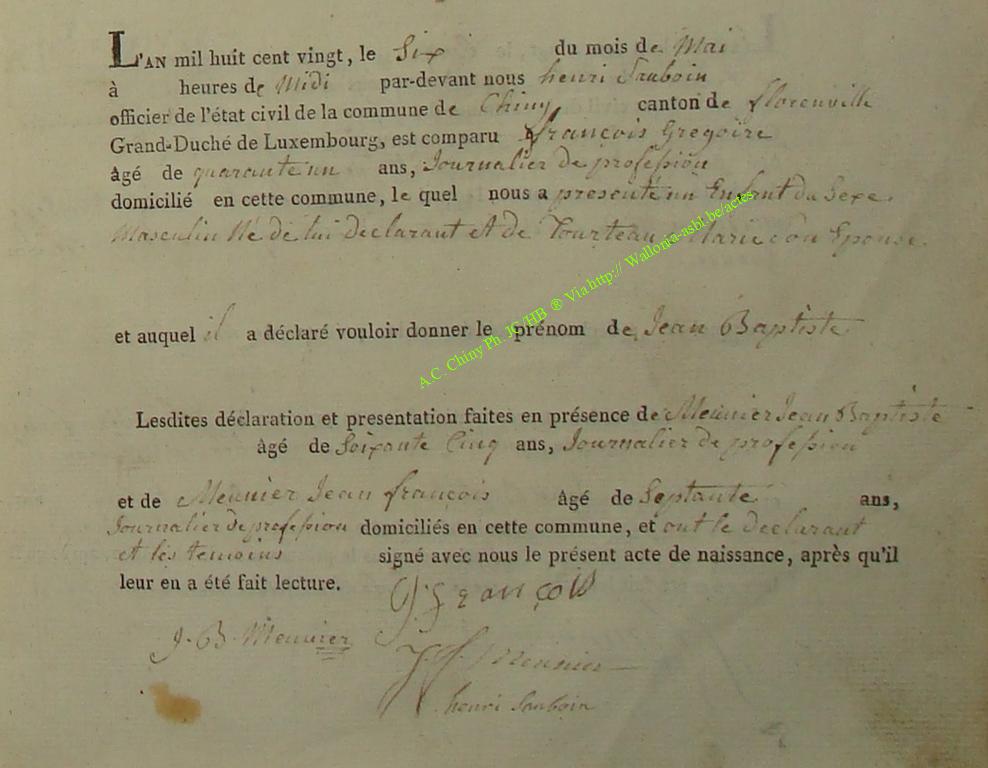 L'AN mil huit cent vingt, le Six du mois de Mai
à heures de Midi par-devant nous henri Sauboin
officier de l'état civil de la commune de Chiny canton de florenville
Grand-Duché de Luxembourg, est comparu françois Gregoire
âgé de quarante un ans, Journalier de profession
domicilié en cette commune, le quel nous a presente un Enfant du Sexe
Masculin Né de lui declarant et de Tourteau Marie son Epouse
et auquel il a déclaré vouloir donner le prénom de Jean Baptiste
Lesdites déclaration et presentation faites en présence de Meunier Jean Baptiste
âgé de Soixante Cinq ans, Journalier de profession
et de Meunier Jean françois âgé de Septante ans,
Journalier de profession domiciliés en cette commune, et ont le declarant
et les temoins signé avec nous le présent acte de naissance, après qu'il
leur en a été fait lecture.
G. françois
J. B. Meunier
J f Meunier
henri Sauboin
A.C. Chiny Ph. JG/HB ® Via http:// Wallonia-asbl.be/actes